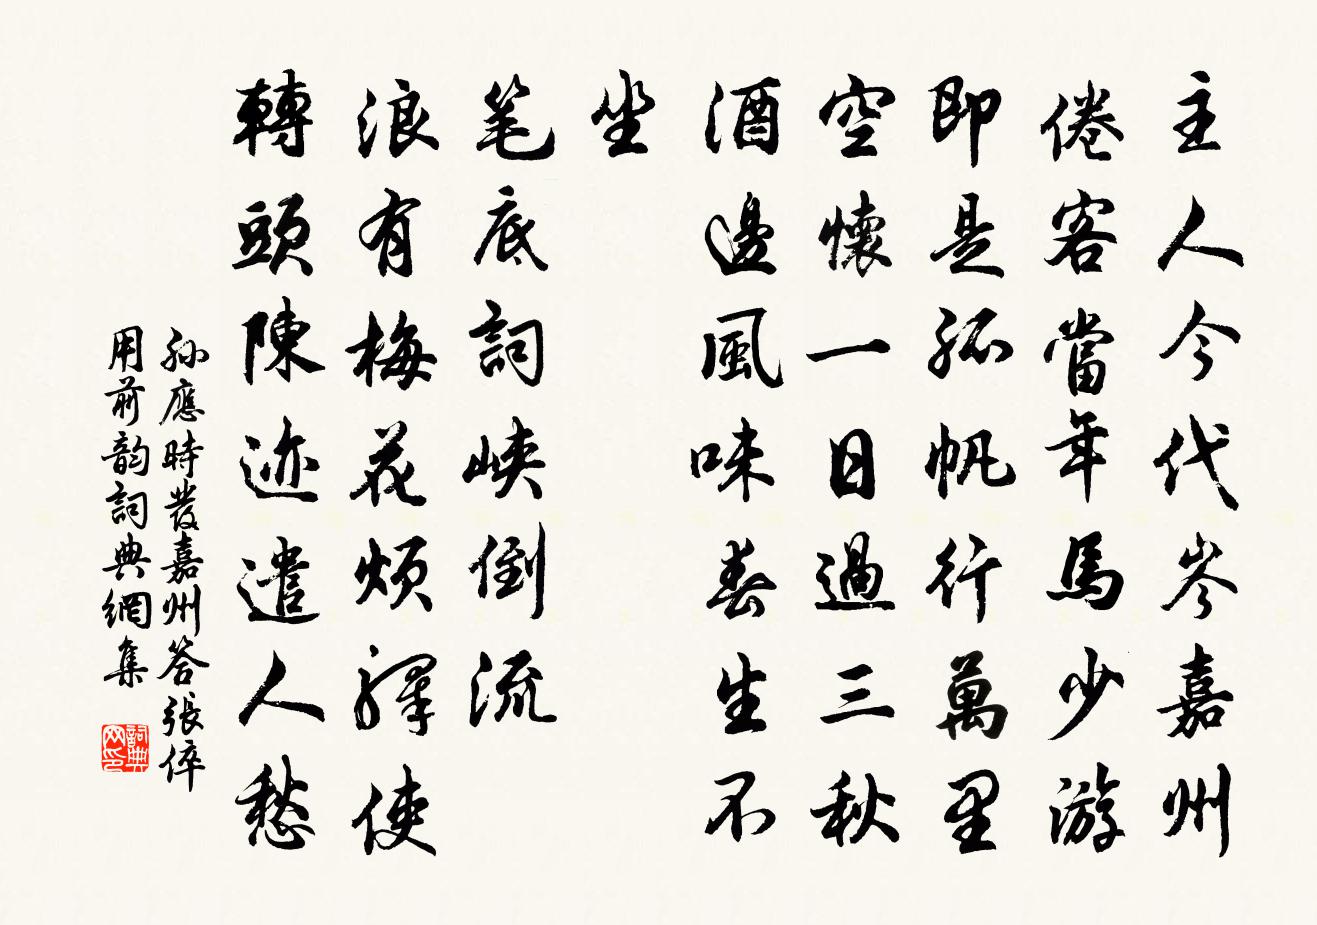 主人今代岑嘉州
倦客當年馬少游
即是孤帆行萬里
空懷一日過三秋
酒邊風味春生不
坐
笔底詞峽倒流
浪有梅花煩驛使
轉頭陳迹遣人愁
孫應時發嘉州答張倅
用前韵詞典網集
詞典
网印